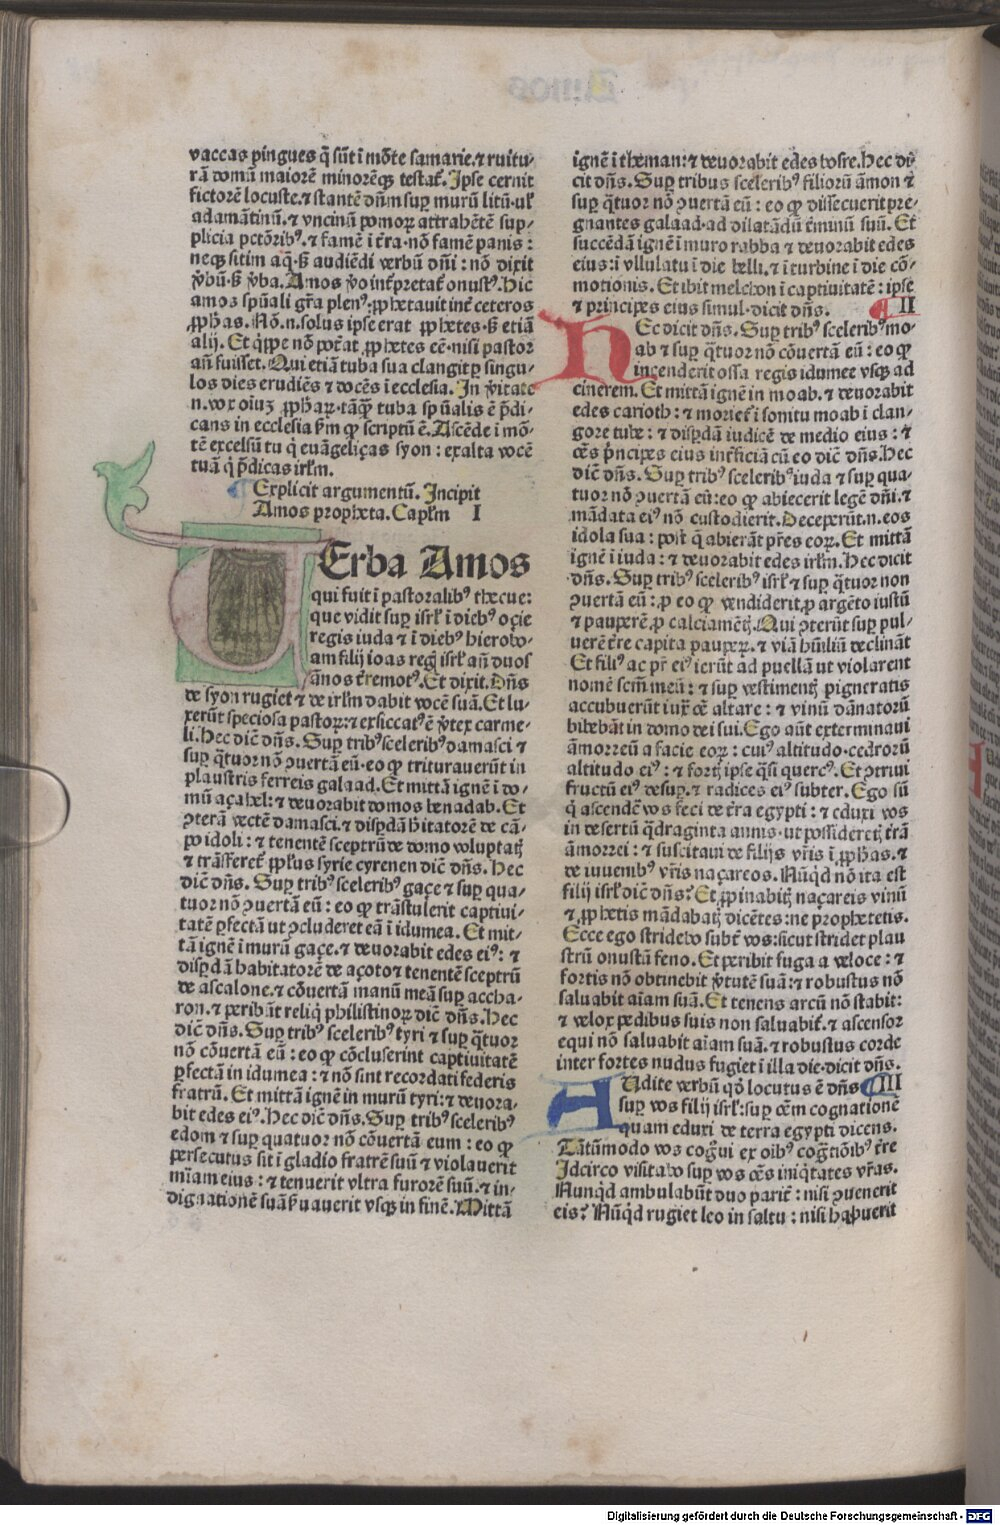 vaccas pingues q̄ sūt ī mōte samarie.⁊ ruitu⸗
rā domū maiorē minorēq₃ testat̄. Ipse cernit
fictorē locuste.⁊ stantē dn̄m sup̱ murū litū·ul̓
adamātinū.⁊ vncinū pomoꝝ attrahētē sup⸗
plicia pctōrib⁹.⁊ famē ī t̄ra·nō famē panis :
neq₃ sitim aq̄·ẜ audiēdi verbū dn̄i : nō dixit
v̓bū·ẜ v̓ba. Amos v̓o int̓pretat̓ onust⁹. Hic
amos spūali gr̄a plen⁹·ꝓphetauit int̓ ceteros
ꝓph̄as. Nō.n.solus ipse erat ꝓphetes·ẜ etiā
alij. Et q̄ppe nō pot̓at ꝓphetes eē·nisi pastor
an̄ fuisset. Qui etiā tuba sua clangit p̱ singu⸗
los dies erudiēs ⁊ docēs ī ecclesia. In v̓itate
n.vox oiuꝫ ꝓph̄aꝝ·tāq̄₃ tuba sp̄ualis ē p̄di⸗
cans in ecclesia ẜm ꝙ scriptū ē. Ascēde ī mō⸗
tē excelsū tu q̄ euāgeliças syon : exalta vocē
tuā q̄ p̄dicas irl̓m.
Explicit argumentū. Incipit
Amos propheta. Capl̓m I
VErba Amos
qui fuit ī pastoralib⁹ thecue:
que vidit sup̱ isrl̓ ī dieb⁹ oçie
regis iuda ⁊ ī dieb⁹ hierobo⸗
am filij ioas reḡ isrl̓ an̄ duos
ānos t̓remot⁹. Et dixit. Dn̄s
de syon rugiet ⁊ de irl̓m dabit vocē suā. Et lu⸗
xerūt speciosa pastoꝝ:⁊ exsiccat⁹ ē v̓tex carme⸗
li. Hec dic̄ dn̄s. Sup̱ trib⁹ scelerib⁹ damasci ⁊
sup̱ q̄tuor nō ꝯuertā eū·eo ꝙ triturauerūt in
plaustris ferreis galaad. Et mittā ignē ī do⸗
mū açahel:⁊ deuorabit domos benadab. Et
ꝯterā vectē damasci.⁊ disp̱dā h̓itatorē de cā⸗
po idoli : ⁊ tenentē sceptrū de domo voluptat̄
⁊ trāsferet̄ ppl̓us syrie cyrenen dic̄ dn̄s. Hec
dic̄ dn̄s. Sup̱ trib⁹ scelerib⁹ gaçe ⁊ sup̱ qua⸗
tuor nō ꝯuertā eū : eo ꝙ trāstulerit captiui⸗
tatē p̱fectā ut ꝯcluderet eā ī idumea. Et mit⸗
tā ignē ī murū gaçe.⁊ deuorabit edes ei⁹: ⁊
disp̱dā habitatorē de açoto ⁊ tenentē sceptrū
de ascalone.⁊ cōuertā manū meā sup̱ accha⸗
ron.⁊ peribūt reliq̄ philistinoꝝ dic̄ dn̄s. Hec
dic̄ dn̄s. Sup̱ trib⁹ sceleribꝰ tyri ⁊ sup̱ q̄tuor
nō cōuertā eū : eo ꝙ cōcluserint captiuitatē
p̱fectā in idumea : ⁊ nō sint recordati federis
fratrū. Et mittā ignē in murū tyri:⁊ deuora⸗
bit edes ei⁹. Hec dic̄ dn̄s. Sup̱ trib⁹ sceleribꝰ
edom ⁊ sup̱ quatuor nō cōuertā eum : eo ꝙ
persecutus sit ī gladio fratrē suū ⁊ violauerit
mīam eius : ⁊ tenuerit vltra furorē suū.⁊ in⸗
dignationē suā ẜuauerit vsq₃ in finē. Mittā
ignē ī theman:⁊ deuorabit edes bosre. Hec di
cit dn̄s. Sup̱ tribus sceleribꝰ filiorū āmon ⁊
sup̱ q̄tuor nō ꝯuertā eū : eo ꝙ dissecuerit pre⸗
gnantes galaad·ad dilatādū t̓minū suū. Et
succēdā ignē ī muro rabba ⁊ deuorabit edes
eius:ī vllulatu ī die belli.⁊ ī turbine ī die cō⸗
motionis. Et ibit melchon ī captiuitatē : ipse
⁊ principes eius simul·dicit dn̄s. II
HEc dicit dn̄s. Sup̱ trib⁹ sceleribꝰ mo⸗
ab ⁊ sup̱ q̄tuor nō cōuertā eū : eo ꝙ
incenderit ossa regis idumee vsq₃ ad
cinerem. Et mittā ignē in moab.⁊ deuorabit
edes carioth : ⁊ moriet̓ ī sonitu moab ī clan⸗
gore tube : ⁊ disp̱dā iudicē de medio eius : ⁊
oēs p̓ncipes eius int̓ficiā cū eo dic̄ dn̄s. Hec
dic̄ dn̄s. Sup̱ trib⁹ sceleribꝰ iuda ⁊ sup̱ qua⸗
tuor nō ꝯuertā eū:eo ꝙ abiecerit legē dn̄i.⁊
mādata ei⁹ nō custodierit. Deceperūt.n.eos
idola sua : post q̄ abierāt pr̄es eoꝝ. Et mittā
ignē ī iuda : ⁊ deuorabit edes irl̓m. Hec dicit
dn̄s. Sup̱ trib⁹ sceleribꝰ isrl̓ ⁊ sup̱ q̄tuor non
ꝯuertā eū : ꝓ eo ꝙ vendiderit ꝓ argēto iustū
⁊ pauperē ꝓ calciamēt̄. Qui ꝯterūt sup̱ pul⸗
uerē t̓re capita paupeꝝ.⁊ viā hūiliū declināt
Et fili⁹ ac pr̄ ei⁹ ierūt ad puellā ut violarent
nomē scm̄ meū : ⁊ sup̱ vestiment̄ pigneratis
accubuerūt iux̄ oē altare : ⁊ vinū dānatorū
bibebāt in domo dei sui. Ego aūt exterminaui
āmorreū a facie eoꝝ : cui⁹ altitudo·cedrorū
altitudo ei⁹ : ⁊ fort̄ ipse q̄si querc⁹. Et ꝯtriui
fructū ei⁹ desup̱.⁊ radices ei⁹ subter. Ego sū
q̄ ascendē vos feci de t̓ra egypti : ⁊ eduxi vos
in desertū q̄draginta annis·ut possideret̄ t̓rā
āmorrei : ⁊ suscitaui de filijs vr̄is ī ꝓph̄as.⁊
de iuuenib⁹ vr̄is naçareos. Nūq̄d nō ita est
filij isrl̓ dic̄ dn̄s? Et ꝓpinabit̄ naçareis vinū
⁊ ꝓphetis mādabat̄ dicētes : ne prophetetis.
Ecce ego stridebo subt̓ vos:sicut stridet plau
strū onustā feno. Et peribit fuga a veloce : ⁊
fortis nō obtinebit v̓tutē suā:⁊ robustus nō
saluabit aīam suā. Et tenens arcū nō stabit:
⁊ velox pedibus suis non saluabit̓.⁊ ascensor
equi nō saluabit aīam suā.⁊ robustus corde
inter fortes nudus fugiet ī illa die·dicit dn̄s.
AUdite verbū qd̓ locutus ē dn̄s III
sup̱ vos filij isrl̓:sup̱ oēm cognationē
quam eduxi de terra egypti dicens.
Tātūmodo vos cogūi ex oib⁹ cogn̄tiōib⁹ t̓re
Idcirco visitabo sup̱ vos oēs iniq̄tates vr̄as.
Nunq̄d ambulabūt duo parit̓ : nisi ꝯuenerit
eis? Nūq̄d rugiet leo in saltu : nisi habuerit
Digitalisierung gefördert durch die Deutsche Forschungsgemeinschaft - DFG